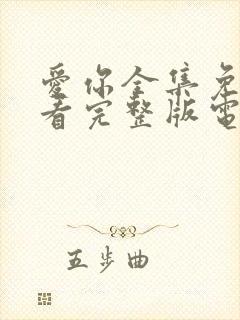 愛你全集免
看完整版電
五步曲